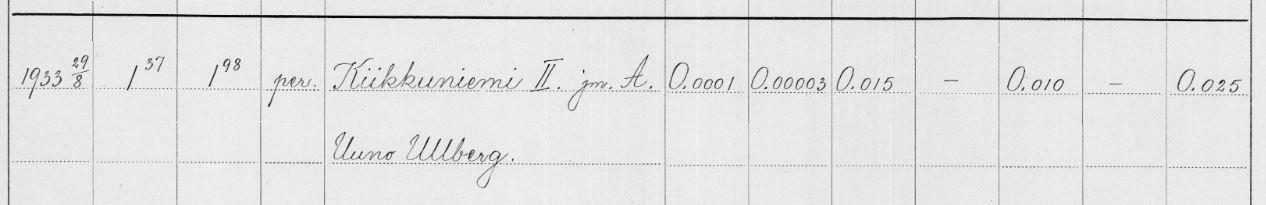 1933 29/8 1 37 1 98 per. Kiikkuniemi II. jm. A. 0.0001 0.00003 0.015 — 0.010 — 0.025
Uuno Ullberg.